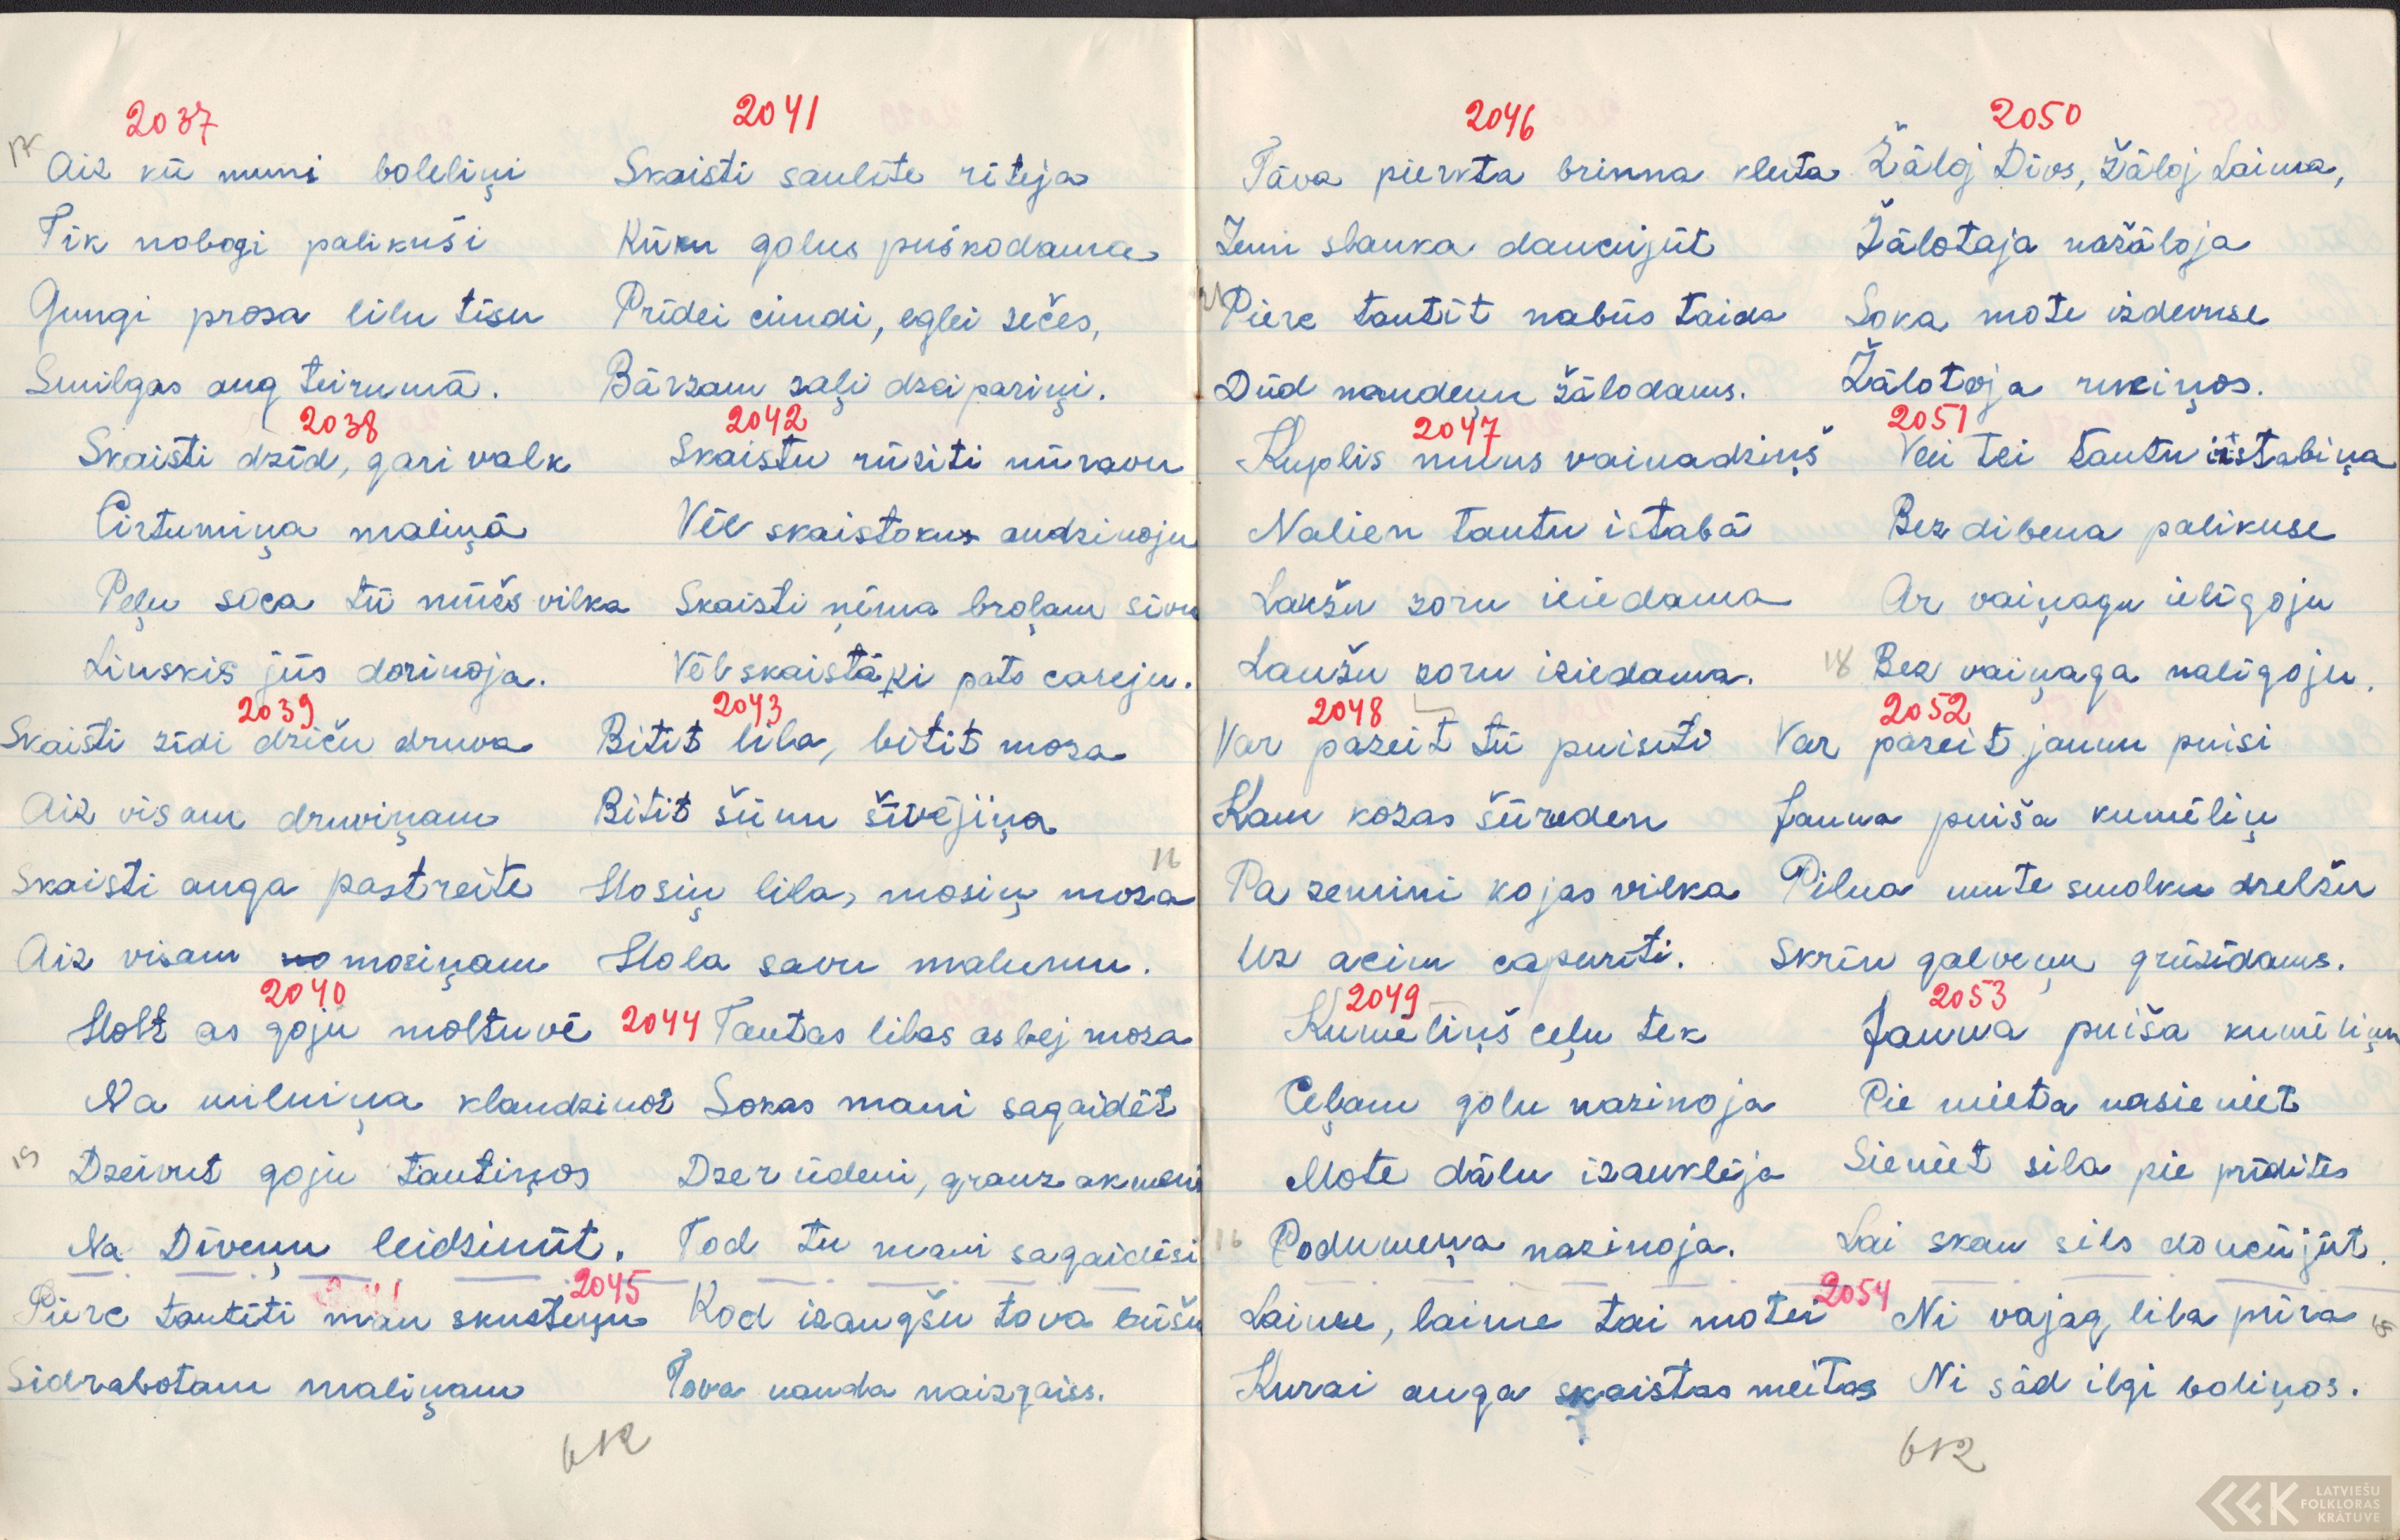 2037
Aiz kū muni boleliņi
Tik nobogi palikuši
Gungi prosa lilu tīsu
Smilgas aug teirumā.
2038
Skaisti dzīd, gari valk
Cirtumiņa maliņā
Peļu soca tū mūžs vilka
Linskis jūs dorinoja.
2039
Skaisti zīdi dziču druva
Aiz visam druviņam
Skaisti auga pastreite
Aiz visam mosiņam
2040
Molt as goju moltuvē
Na milniņa klaudzinot
15 Dzeivut goju tautiņos
Na Dīveņu leidzinūt.
2045
Pierc tautīti man skusteņu
Sidrabotam maliņam
2041
Skaisti saulīte ritēja
Kūku golus puškodama
Prīdei cimdi, eglei zečes,
Bārzam zaļi dzeipariņi.
2042
Skaistu rūziti mūravu
Vēl skaistoku audzinoju
Skaisti ņēma broļam sivu
Vēl skaistāki pats careju.
2043
Bitit lila, bitit moza
Bitit šūnu šivējiņa
16
Mosiņ lila, mosiņ moza
Mola savu malumu.
2044 Tautas lilas as bej moza
Sokas mani sagaidēt
Dzer ūdeni, grauz akmeni
Tod tu mani sagaidēsi
Kod izaugšu tova būšu
Tova nauda naizgaiss.
612
2046
Tāva pierkta brinna kleita
Zemi slauka dancūjūt
Pierc tautīt nabūs taida
Dūd naudeņu žālodams.
2047
Kuplis muns vainadziņš
Nalien tautu istabā
Laužu zoru ieiedama
Laužu zoru iziedama.
2048
Var pazeit tū puisiti
Kam kozas šūruden
Pa zemini kojas vilka
Uz acim capuriti.
2049
Kumeliņš ceļu tek
Ceļam golu nazinoja
Mote dālu izauklēja
16 Podumeņa nazinoja.
Laime, laime tai motei
Kurai auga skaistas meitas
2050
Žāloj Dīvs, žāloj Laima,
Žālotaja nažāloja
Soka mote izdevuse
Žālotoja rukiņos.
2051
Vei tei tautu istabiņa
Bez dibena palikuse
Ar vaiņagu ielīgoju
18 Bez vaiņaga nalīgoju.
2052
Var pazeit jaunu puisi
Jauna puiša kumēliņ
Pilna mute smolku dzelžu
Skrīn galveņu grūzīdams.
2053
Jauna puiša kumēliņu
Pie mieta nasieniet
Sieniet sila pie prīdītes
Lai skan sils doncūjūt.
2054
Ni vajag lila pūra
Ni sād ilgi boliņos.
612
LATVIEŠU
FOLKLORAS
KRĀTUVE